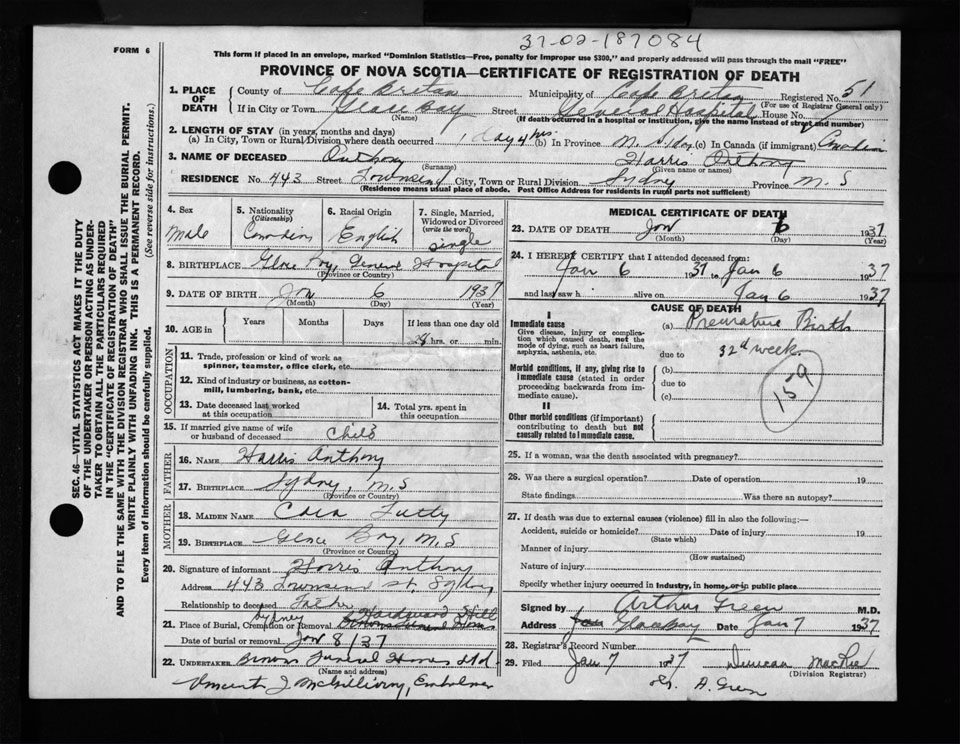 37-02-187084
FORM 6
This form if placed in an envelope, marked "Dominion Statistics—Free, penalty for improper use $300," and properly addressed will pass through the mail "FREE"
PROVINCE OF NOVA SCOTIA—CERTIFICATE OF REGISTRATION OF DEATH
SEC. 46—VITAL STATISTICS ACT MAKES IT THE DUTY
OF THE UNDERTAKER OR PERSON ACTING AS UNDER-
TAKER TO OBTAIN ALL THE PARTICULARS REQUIRED
IN THE "CERTIFICATE OF REGISTRATION OF DEATH"
AND TO FILE THE SAME WITH THE DIVISION REGISTRAR WHO SHALL ISSUE THE BURIAL PERMIT.
WRITE PLAINLY WITH UNFADING INK. THIS IS A PERMANENT RECORD.
Every item of information should be carefully supplied. (See reverse side for instructions.)
1. PLACE OF DEATH County of Cape Breton Municipality of Cape Breton Registered No. 51
(For use of Registrar General only)
If in City or Town Glace Bay Street General Hospital House No.
(Name) (If death occurred in a hospital or institution, give the name instead of street and number)
2. LENGTH OF STAY (in years, months and days)
(a) In City, Town or Rural Division where death occurred 1 day 4 hrs. (b) In Province (c) In Canada (if immigrant) Canadian
3. NAME OF DECEASED Anthony Harris Anthony
(Surname) (Given name or names)
RESIDENCE No. 443 Street Townsend City, Town or Rural Division Sydney Province N.S
(Residence means usual place of abode. Post Office Address for residents in rural parts not sufficient)
4. Sex Male
5. Nationality (Citizenship) Canadian
6. Racial Origin English
7. Single, Married, Widowed or Divorced (write the word) single
8. BIRTHPLACE Glace Bay, General Hospital
(Province or Country)
9. DATE OF BIRTH Jan 6 1937
(Month) (Day) (Year)
10. AGE in Years Months Days If less than one day old
28 hrs. or min.
OCCUPATION
11. Trade, profession or kind of work as spinner, teamster, office clerk, etc.
12. Kind of industry or business, as cotton-mill, lumbering, bank, etc.
13. Date deceased last worked at this occupation
14. Total yrs. spent in this occupation
15. If married give name of wife or husband of deceased Child
FATHER
16. NAME Harris Anthony
17. BIRTHPLACE Sydney, N.S
(Province or Country)
MOTHER
18. MAIDEN NAME Cora
19. BIRTHPLACE Glace Bay, N.S
(Province or Country)
20. Signature of informant Harris Anthony
Address 443 Townsend St, Sydney
Relationship to deceased Father
21. Place of Burial, Cremation or Removal Sydney Hardwood Hill
Date of burial or removal Jan 8/37
22. UNDERTAKER Browns Funeral Home Ltd.
(Name and address)
Vincent J. McGillivray, Embalmer
MEDICAL CERTIFICATE OF DEATH
23. DATE OF DEATH Jan 6 1937
(Month) (Day) (Year)
24. I HEREBY CERTIFY that I attended deceased from:
Jan 6 1937 to Jan 6 1937
and last saw h alive on Jan 6 1937
CAUSE OF DEATH
I
Immediate cause
Give disease, injury or complication which caused death, not the mode of dying, such as heart failure, asphyxia, asthenia, etc.
(a) Premature Birth
due to 32d week.
Morbid conditions, if any, giving rise to immediate cause (stated in order proceeding backwards from immediate cause).
(b)
due to
(c)
159
II
Other morbid conditions (if important) contributing to death but not causally related to immediate cause.
25. If a woman, was the death associated with pregnancy?
26. Was there a surgical operation? Date of operation 19
State findings Was there an autopsy?
27. If death was due to external causes (violence) fill in also the following:—
Accident, suicide or homicide? Date of injury 19
(State which)
Manner of injury
(How sustained)
Nature of injury
Specify whether injury occurred in industry, in home, or in public place
Signed by Arthur Green M.D.
Address Glace Bay Date Jan 7 1937
28. Registrar's Record Number
29. Filed Jan 7 1937 Duncan
(Division Registrar)
A. Green